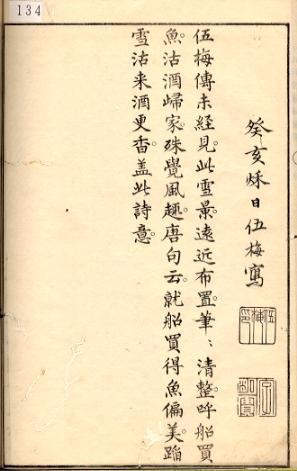 134
癸亥秌日伍梅寫
伍梅傳未經見此雪景遠近布置筆〻清整呼船買
魚沽酒歸家殊覺風趣唐句云就船買得魚偏美蹈
雪沽来酒更香盖此詩意